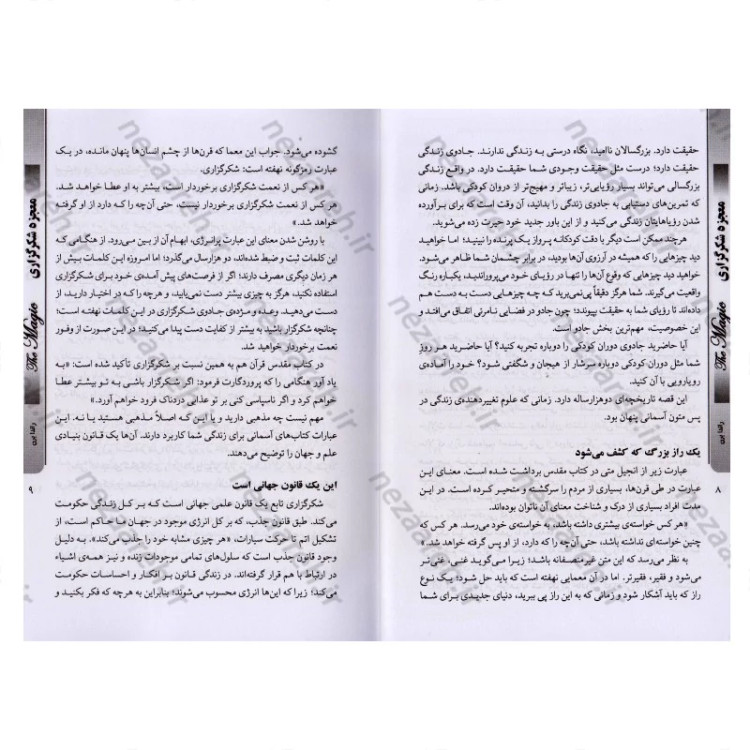 معجزه شکرگزاری
The Magic
راندا برن
۸
حقیقت دارد. بزرگسالان ناامید، نگاه درستی به زندگی ندارند. جادوی زندگی
حقیقت دارد؛ درست مثل حقیقت وجودی شما حقیقت دارد. در واقع زندگی
بزرگسالی می‌تواند بسیار رؤیایی‌تر، زیباتر و مهیج‌تر از دروان کودکی باشد. زمانی
که تمرین‌های دستیابی به جادوی زندگی را بدانید، آن وقت است که برای برآورده
شدن رؤیاهایتان زندگی می‌کنید و از این باور جدید خود حیرت زده می‌شوید.
هرچند ممکن است دیگر با دقت کودکانه پرواز یک پرنده را نبینید؛ اما خواهید
دید چیزهایی را که همیشه در آرزوی آن‌ها بودید، در برابر چشمان شما ظاهر می‌شود.
خواهید دید چیزهایی که وقوع آن‌ها را تنهـا در رؤیای خـود می‌پروراندید، یکباره رنگ
واقعیت می‌گیرند. شما هرگز دقیقاً پی‌نمی‌برید کـه چـه چیزهـایی دسـت بـه دسـت هـم
داده‌اند تا رؤیای شما به حقیقت بپیوندد؛ چون جادو در فضایی نامرئی اتفاق می‌افتد و
این خصوصیت، مهم‌ترین بخش جادو است.
آیا حاضرید جادوی دوران کودکی را دوباره تجربه کنید؟ آیا حاضرید هـر روز
شما مثل دوران کودکی دوباره سرشار از هیجان و شگفتی شود؟ خود را آمـاده‌ی
رویارویی با آن کنید.
این قصه تاریخچه‌ای دوهزارساله دارد. زمانی که علوم تغییردهنده‌ی زندگی در
پس متون آسمانی پنهان بود.
یک راز بزرگ که کشف می‌شود
عبارت زیر از انجیل متی در کتاب مقدس برداشت شده است. معنای این
عبارت در طی قرن‌ها، بسیاری از مردم را سرگشته و متحیر کـرده اسـت. در ایـن
مدت افراد بسیاری از درک و شناخت معنای آن ناتوان بوده‌اند.
«هر کس خواسته‌ی بیشتری داشته باشد، به خواسته‌ی خود می‌رسد. هر کس که
چنین خواسته‌ای نداشته باشد، حتی آن‌چه را که دارد، از او پس گرفته خواهد شد.»
به نظر می‌رسد که این متن غیرمنصفانه باشد؛ زیـرا مـی‌گوید غنـی، غنی‌تر
می‌شود و فقیر، فقیرتر. اما در آن معمایی نهفته است که باید حل شود؛ یک نـوع
راز که باید آشکار شود و زمانی که به این راز پی ببرید، دنیای جدیـدی بـرای شـما
گشوده می‌شود. جواب این معما که قرن‌ها از چشم انسان‌ها پنهان مانده، در یـک
عبارت رمزگونه نهفته است: شکرگزاری.
«هر کس از نعمت شکرگزاری برخوردار است، بیشتر به او عطـا خواهـد شـد.
هر کس از نعمت شکرگزاری برخوردار نیست، حتی آن‌چه را که دارد از او گرفته
خواهد شد.»
با روشن شدن معنای این عبارت پرانرژی، ابهام آن از بـین مـی‌رود. از هنگامی که
این کلمات ثبت و ضبط شده‌اند، دو هزارسال می‌گذرد؛ اما امروزه این کلمـات بیش از
هر زمان دیگری مصرف دارند؛ اگر از فرصت‌های پیش آمـده‌ی خـود برای شکرگزاری
استفاده نکنید، هرگز به چیزی بیشتر دست نمی‌یابید، و هرچه را کـه در اختیار دارید، از
دست می‌دهید. وعـده و مـژده‌ی جـادوی شـکرگزاری در ایـن کلمـات نهفتـه اسـت؛
چنانچه شکرگزار باشید به بیشتر از کفایت دست پیدا می‌کنید؛ در این صورت از وفور
نعمت برخوردار خواهید شد.
در کتاب مقدس قرآن هم به همین نسبت بر شکرگزاری تأکید شده است: «بـه
یاد آور هنگامی را که پروردگارت فرمود: اگر شکرگزار باشی به تو بیشتر عطـا
خواهم کرد و اگر ناسپاسی کنی بر تو عذابی دردناک فرود خواهم آورد.»
مهم نیست چه مذهبی دارید و یا ایـن کـه اصـلاً مـذهبی هستید یـا نـه. ایـن
عبارات کتاب‌های آسمانی برای زندگی شما کاربرد دارند. آن‌ها یک قـانون بنیادی
علم و جهان را توضیح می‌دهند.
این یک قانون جهانی است
شکرگزاری تابع یک قانون علمی جهانی است کـه بـر کـل زنـدگی حکومت
می‌کند. طبق قانون جذب، که بر کل انرژی موجود در جهـان حـاکم اسـت، از
تشکیل اتم تا حرکت سیارات، «هر چیزی مشابه خود را جذب می‌کند». بـه دلیـل
وجود قانون جذب است که سلول‌های تمامی موجودات زنده و نیز همـه‌ی اشـیاء
در ارتباط با هم قرار گرفته‌اند. در زندگی قانون بـر افکـار و احساسـات حکومت
می‌کند؛ زیرا که این‌ها انرژی محسوب می‌شوند؛ بنابراین به هرچه که فکر بکنید و
معجزه شکرگزاری
The Magic
راندا برن
۹
nezaareh.ir